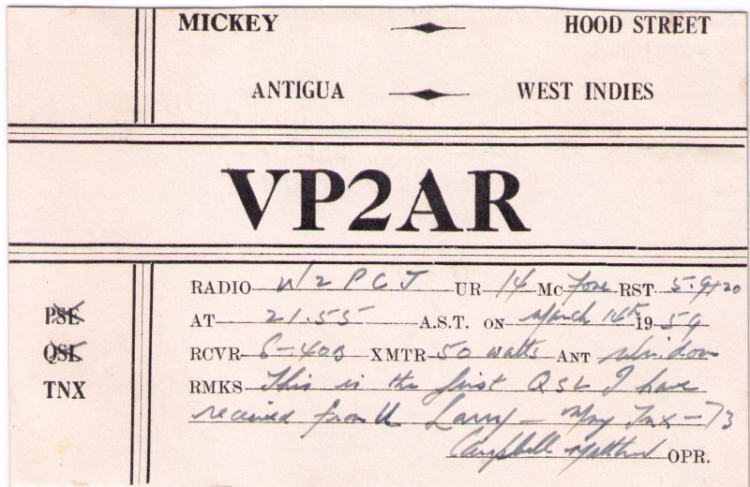 MICKEY HOOD STREET
ANTIGUA WEST INDIES
VP2AR
RADIO W2PCJ UR 14 MC fone RST 5-9+20
PSE AT 21.55 A.S.T. ON March 14th 1959
QSL RCVR S-40B XMTR 50 watts ANT windom
TNX RMKS This is the first QSL I have
received from U Larry - Many Tnx - 73
Campbell OPR.